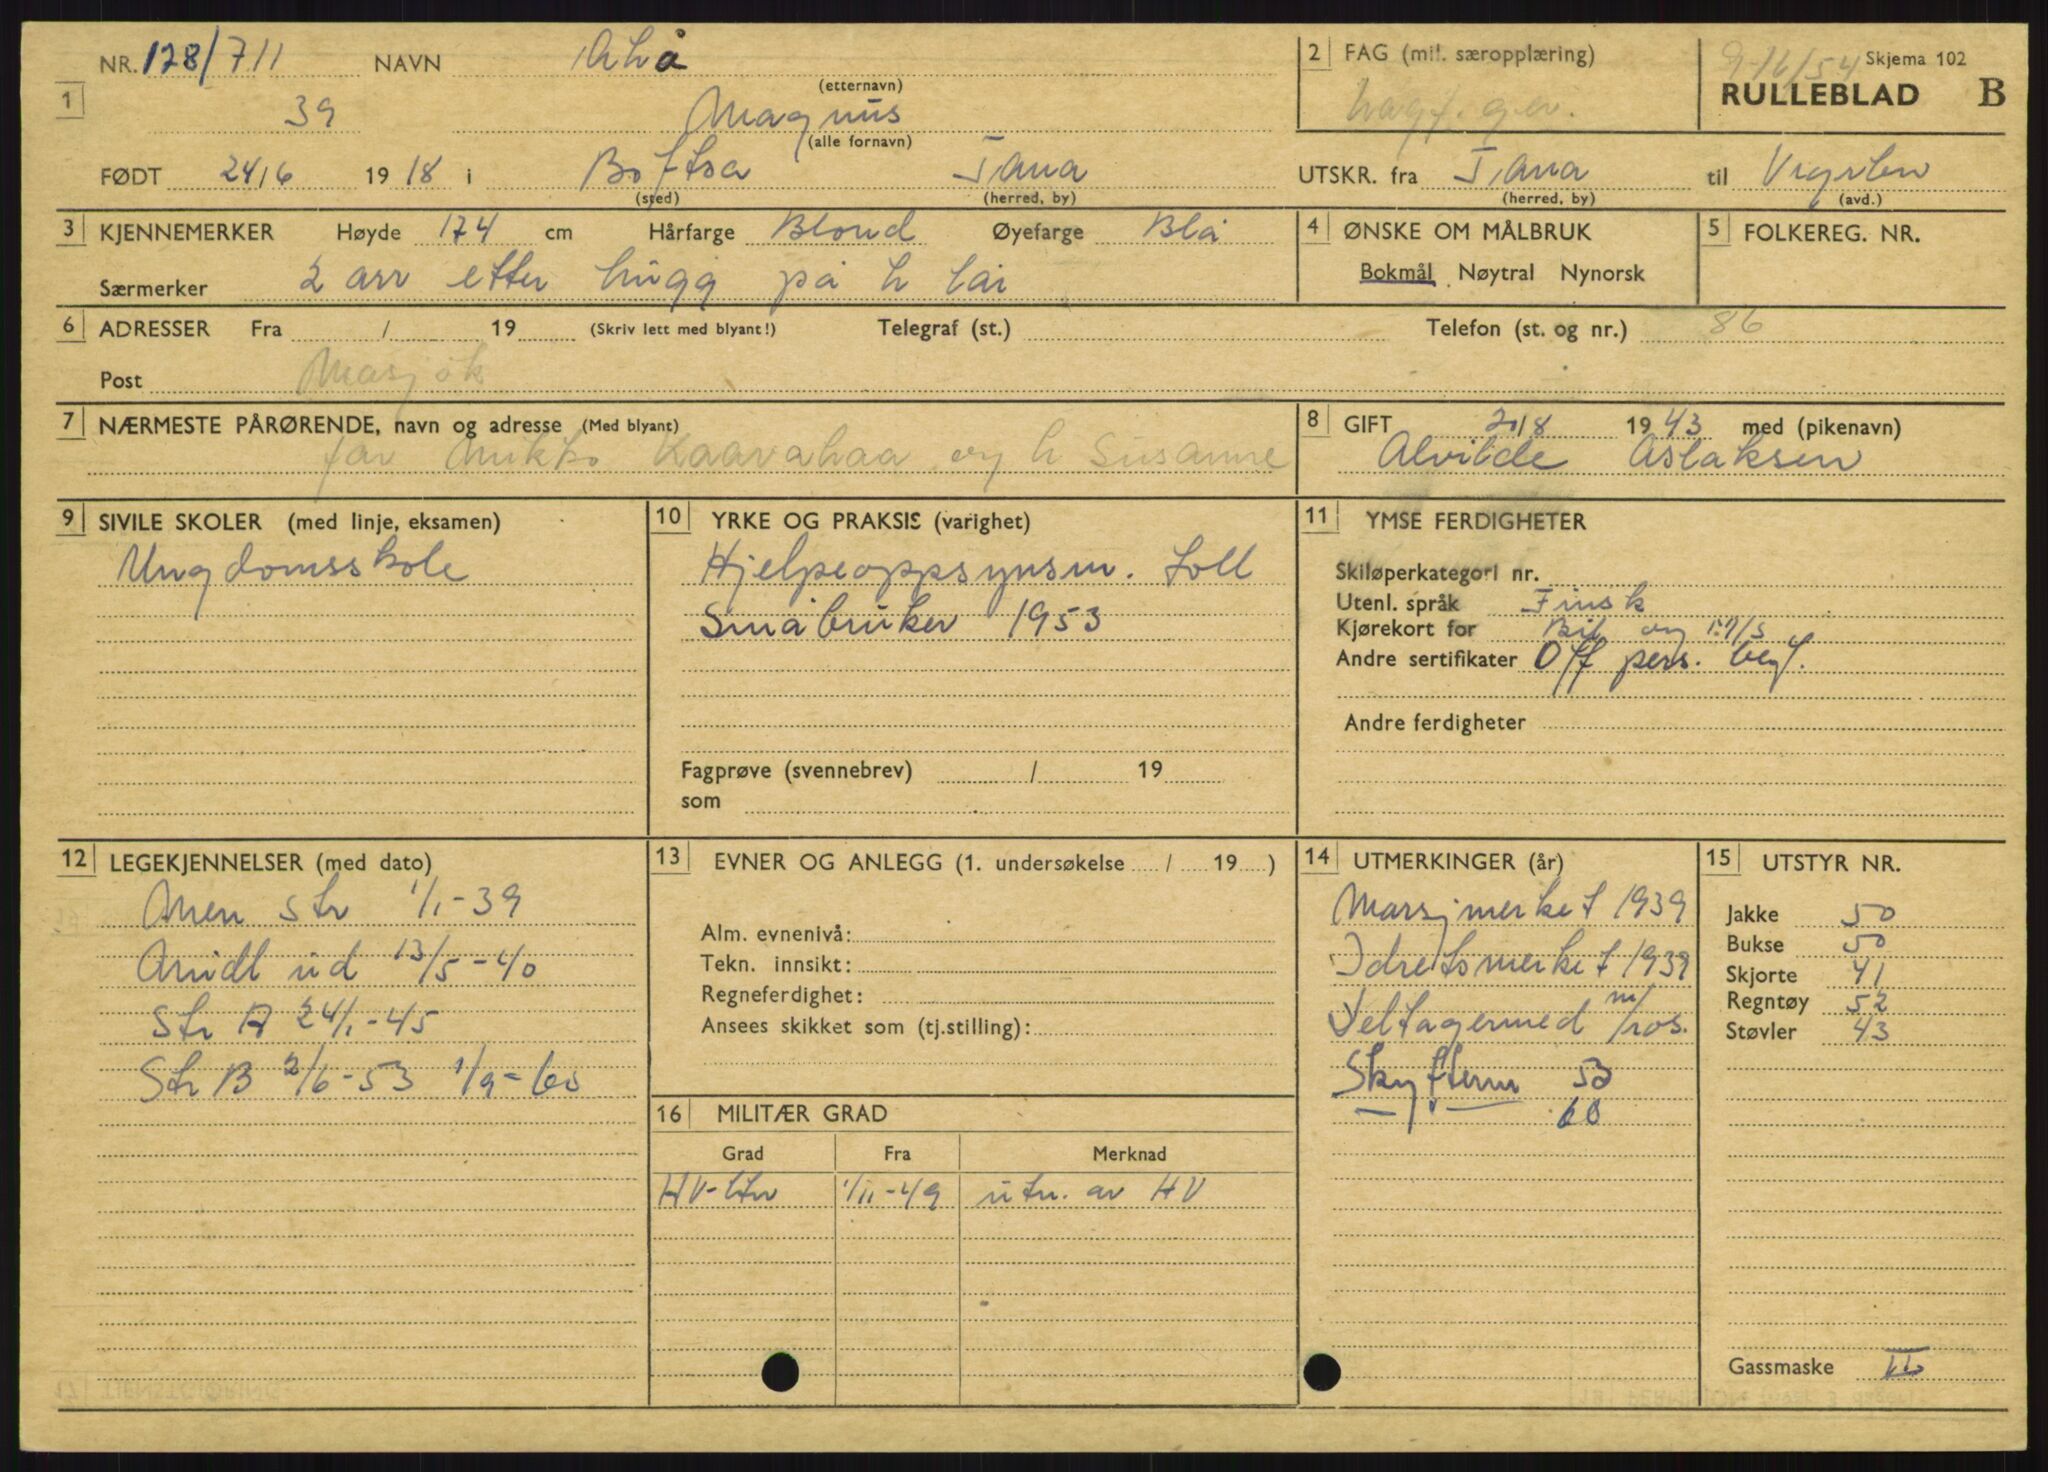 NR. 128/711 NAVN Aho
(etternavn)
1 39 Magnus
(alle fornavn)
FØDT 24/6 1918 i Boftsa Tana
(sted) (herred, by)
2 FAG (mil. særopplæring)
Skjema 102
RULLEBLAD B
UTSKR. fra Tana til
(herred, by) (avd.)
3 KJENNEMERKER Høyde 174 cm Hårfarge Blond Øyefarge Blå
Særmerker 2 arr etter hugg på h lår
4 ØNSKE OM MÅLBRUK
Bokmål Nøytral Nynorsk
5 FOLKEREG. NR.
6 ADRESSER Fra / 19 (Skriv lett med blyant!) Telegraf (st.) Telefon (st. og nr.) 86
Post Masjok
7 NÆRMESTE PÅRØRENDE, navn og adresse (Med blyant)
far Mikko Kaavahaa og h Susanne
8 GIFT 20/8 1943 med (pikenavn)
Alvilde Aslaksen
9 SIVILE SKOLER (med linje, eksamen)
Ungdomsskole
10 YRKE OG PRAKSIS (varighet)
Hjelpeoppsynsm. toll
Småbruker 1953
Fagprøve (svennebrev) / 19
som
11 YMSE FERDIGHETER
Skiløperkategori nr.
Utenl. språk Finsk
Kjørekort for Bil og m/s
Andre sertifikater Off pers. bef.
Andre ferdigheter
12 LEGEKJENNELSER (med dato)
Men str 1/1-39
Midl ud 13/5-40
Str A 24/1-45
Str B 2/6-53 1/9-60
13 EVNER OG ANLEGG (1. undersøkelse / 19 )
Alm. evnenivå:
Tekn. innsikt:
Regneferdighet:
Ansees skikket som (tj.stilling):
14 UTMERKINGER (år)
Marsjmerket 1939
Idretsmerket 1939
Deltagermed m/ros.
Skytterm 53
— " — 60
15 UTSTYR NR.
Jakke 50
Bukse 50
Skjorte 41
Regntøy 52
Støvler 43
Gassmaske III
16 MILITÆR GRAD
Grad Fra Merknad
HV-ltn 1/11-49 utn. av HV